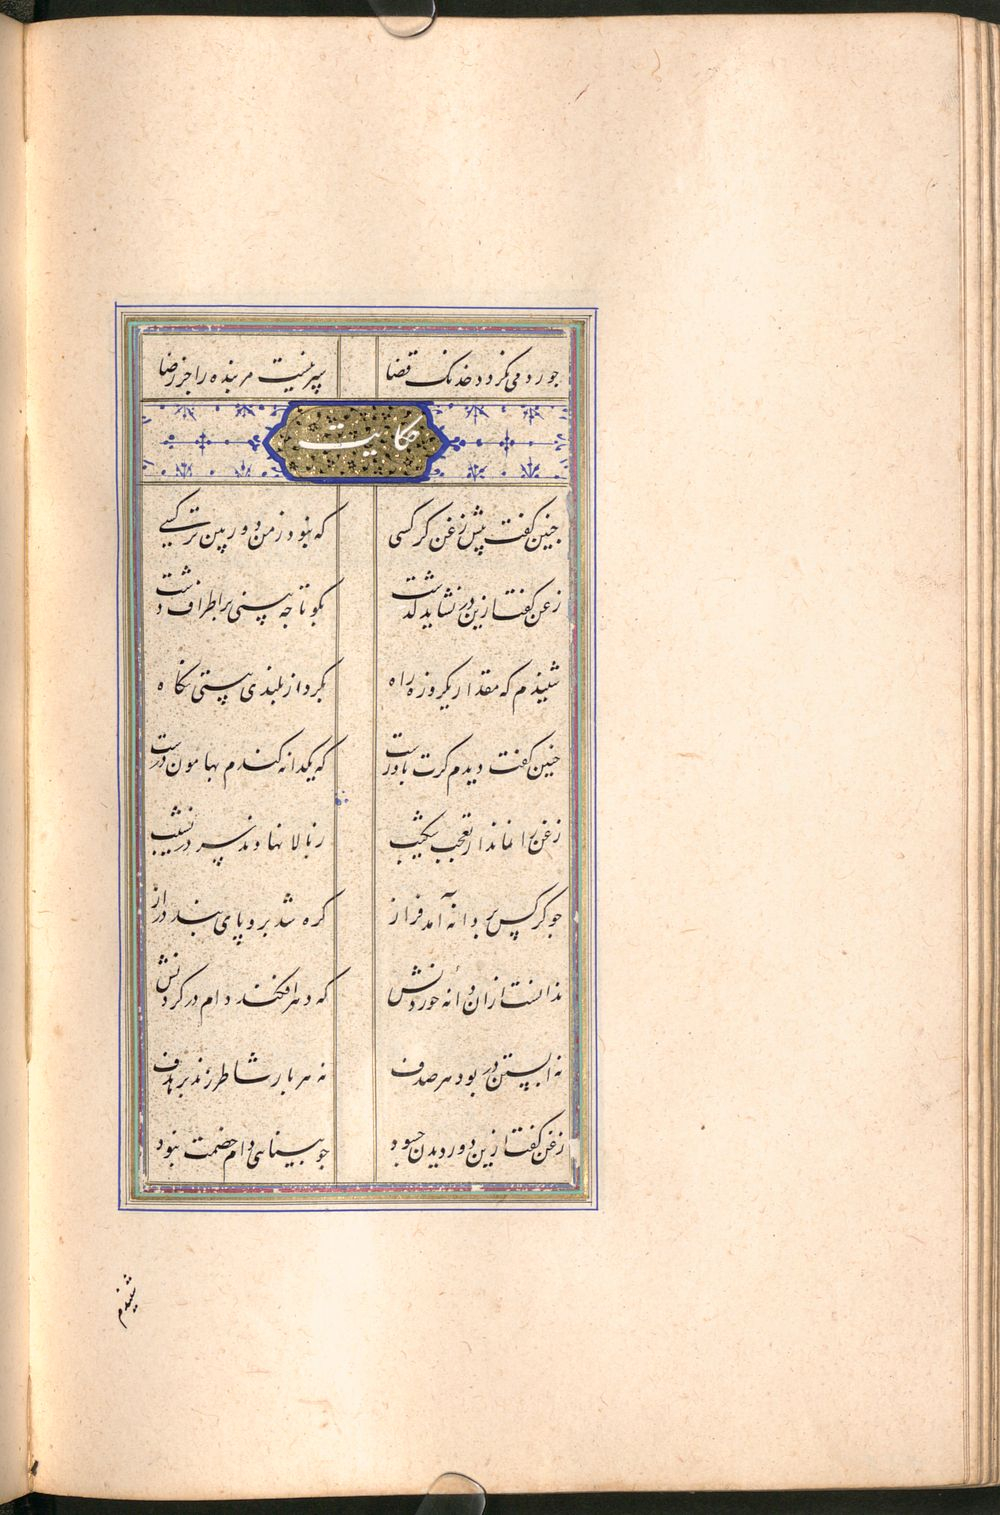 جو رد می نگردد خدنک قضا سپر نیست مر بنده را جز رضا
حکایت
جنین کفت پیش زغن کرکسی که نبود ز من دوربین تر کسی
زغن کفت ازین در نشاید کذشت بکو تا جه بینی بر اطراف دشت
شنیذم که مقدار یکروزه راه بکرد از بلندی بپستی نکاه
جنین کفت دیدم کرت باورست که یکدانه کندم بهامون درست
زغن را نماند از تعجب شکیب ز بالا نهادند سر در نشیب
جو کرکس بر دانه آمد فراز کره شد برو پای بند دراز
ندانست ازان دانه خوردنش که دهر افکند دام در کردنش
نه آبستن در بود هر صدف نه هر بار شاطر زند بر هدف
زغن کفت ازین دور دیدن جسود جو بینایی دام خصمت نبود
شنیذم